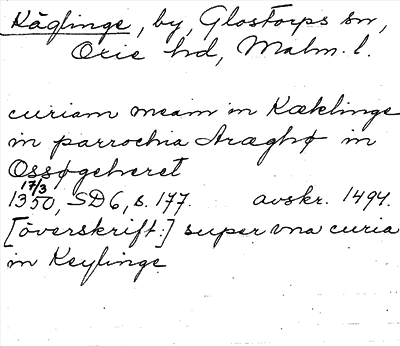 Käglinge, by, Glostorps sn,
Oxie hd, Malm. l.
curiam meam in Kæklinge
in parrochia Aræghø in
Ossøgeheret
17/3
1350, SD6, s. 177. avskr. 1494.
[överskrift:] super vna curia
in Keylinge